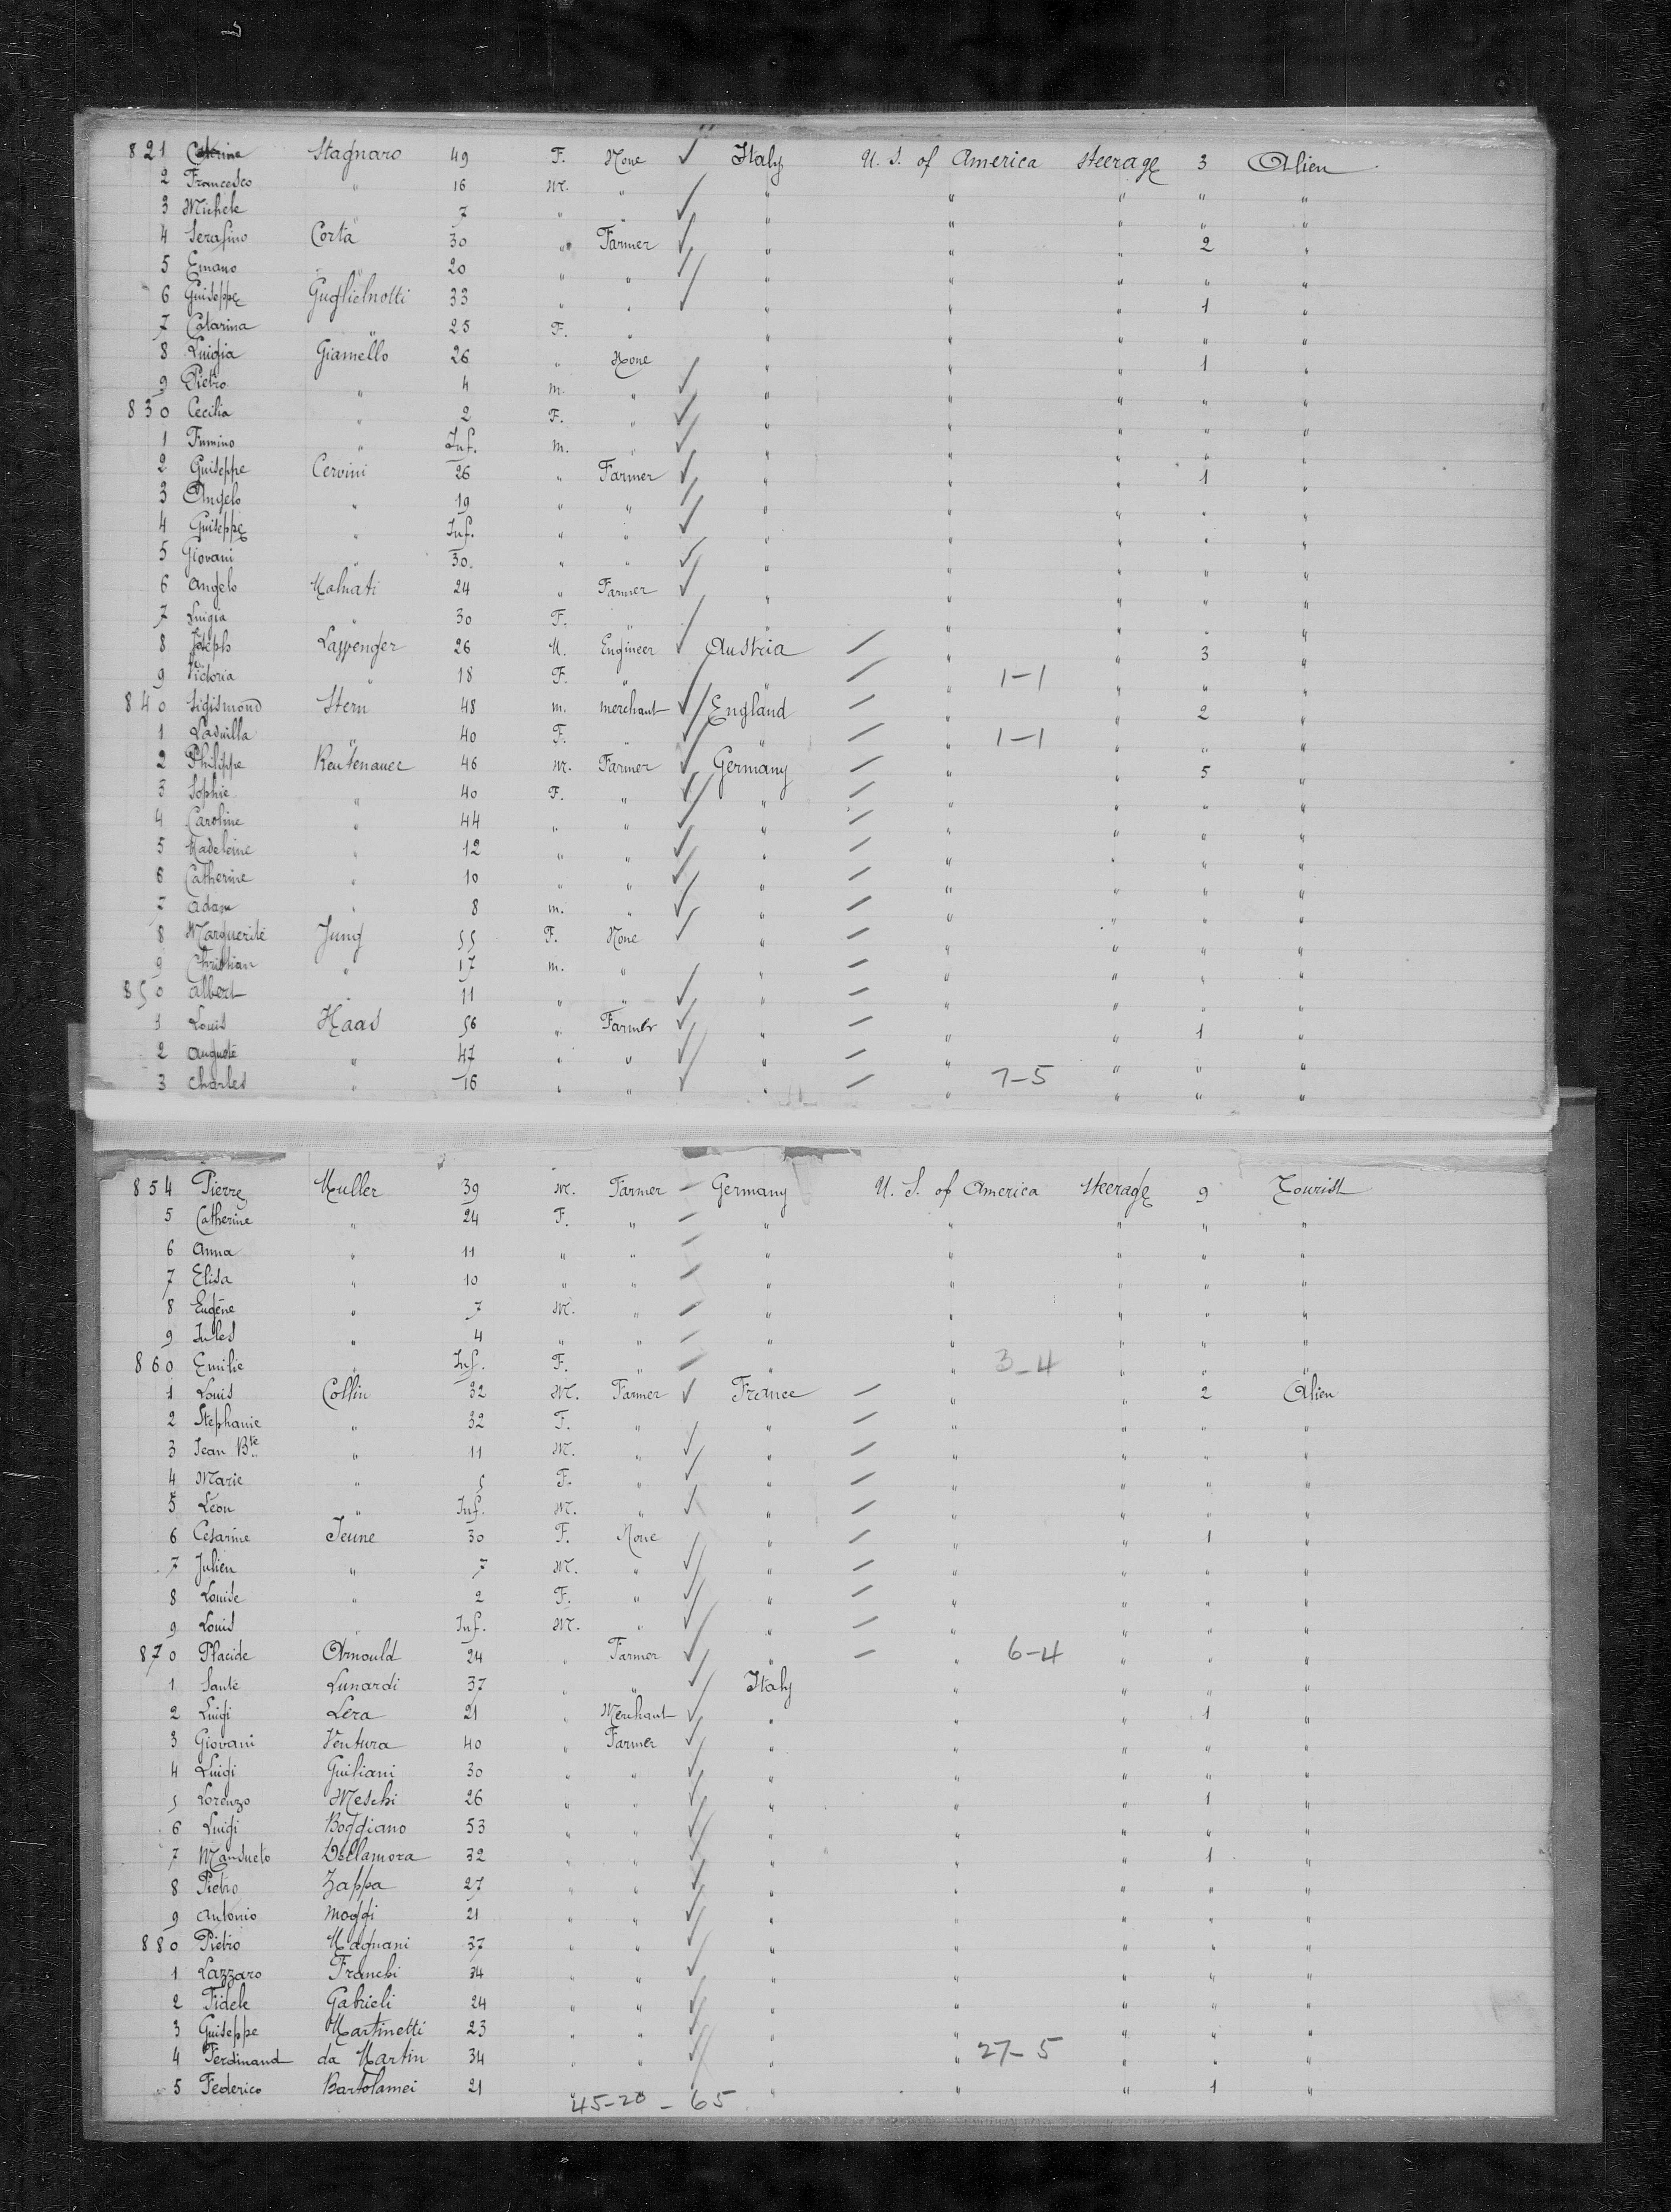 821 Caterine Stagnaro 49 F. None ✓ Italy U. S. of America steerage 3 Alien
2 Francesco " 16 M. " ✓ " " " " "
3 Michele " 7 " " ✓ " " " " "
4 Serafino Corta 30 " Farmer ✓ " " " 2 "
5 Emano " 20 " " ✓ " " " " "
6 Guiseppe Guglielmotti 33 " " ✓ " " " 1 "
7 Catarina " 25 F. " " " " " "
8 Luigia Giamello 26 " None " " " 1 "
9 Pietro " 4 m. " ✓ " " " " "
830 Cecilia " 2 F. " ✓ " " " " "
1 Fumino " Inf. m. " ✓ " " " " "
2 Guiseppe Cervini 26 " Farmer ✓ " " " 1 "
3 Angelo " 19 " " ✓ " " " " "
4 Guiseppe " Inf. " " ✓ " " " " "
5 Giovani " 30. " " ✓ " " " " "
6 Angelo Malnati 24 " Farmer ✓ " " " " "
7 Luigia " 30 F. " " " " " "
8 Joseph 26 M. Engineer ✓ Austria / " " 3 "
9 Victoria " 18 F. " ✓ " / " 1-1 " " "
840 Sigismond Stern 48 m. merchant ✓ England / " " 2 "
1 " 40 F. " ✓ " / " 1-1 " " "
2 Philippe Reutenauer 46 m. Farmer ✓ Germany / " " 5 "
3 Sophie " 40 F. " ✓ " / " " " "
4 Caroline " 44 " " ✓ " / " " " "
5 Madeleine " 12 " " ✓ " / " " " "
6 Catherine " 10 " " ✓ " / " " " "
7 Adam " 8 m. " ✓ " / " " " "
8 Marguerite Jung 55 F. None ✓ " / " " " "
9 Christian " 17 m. " " / " " " "
850 Albert " 11 " " ✓ " / " " " "
1 Louis Haas 56 " Farmer ✓ " / " " 1 "
2 Auguste " 47 " " ✓ " / " " " "
3 Charles " 16 " " ✓ " / " 7-5 " " "
854 Pierre Muller 39 M. Farmer - Germany U. S. of America steerage 9 Tourist
5 Catherine " 24 F. " - " " " " "
6 Anna " 11 " " - " " " " "
7 Elisa " 10 " " - " " " " "
8 Eugène " 7 M. " - " " " " "
9 Jules " 4 " " - " " " " "
860 Emilie " Inf. F. " - " " 3-4 " " "
1 Louis Collin 32 M. Farmer ✓ France / " " 2 Alien
2 Stephanie " 32 F. " " / " " " "
3 Jean Bte " 11 M. " ✓ " / " " " "
4 Marie " 5 F. " ✓ " / " " " "
5 Léon " Inf. M. " ✓ " / " " " "
6 Cesarine Jeune 30 F. None " / " " 1 "
7 Julien " 7 M. " ✓ " / " " " "
8 Louise " 2 F. " ✓ " / " " " "
9 Louis " Inf. M. " ✓ " / " " " "
870 Placide Arnould 24 " Farmer ✓ " / " 6-4 " " "
1 Sante Lunardi 37 " " ✓ Italy " " " "
2 Luigi Lera 21 " Merchant ✓ " " " 1 "
3 Giovani Ventura 40 " Farmer ✓ " " " " "
4 Luigi Guiliani 30 " " ✓ " " " " "
5 Lorenzo Meschi 26 " " ✓ " " " 1 "
6 Luigi Boggiano 53 " " ✓ " " " " "
7 Mansueto Dellamora 32 " " ✓ " " " 1 "
8 Pietro Zappa 27 " " ✓ " " " " "
9 Antonio Moggi 21 " " ✓ " " " " "
880 Pietro Magnani 37 " " ✓ " " " " "
1 Lazzaro Franchi 34 " " ✓ " " " " "
2 Fidele Gabrieli 24 " " ✓ " " " " "
3 Guiseppe Martinetti 23 " " ✓ " " " " "
4 Ferdinand da Martin 34 " " ✓ " " 27-5 " " "
5 Federico Bartolamei 21 " " " " " 1 "
45-20 - 65